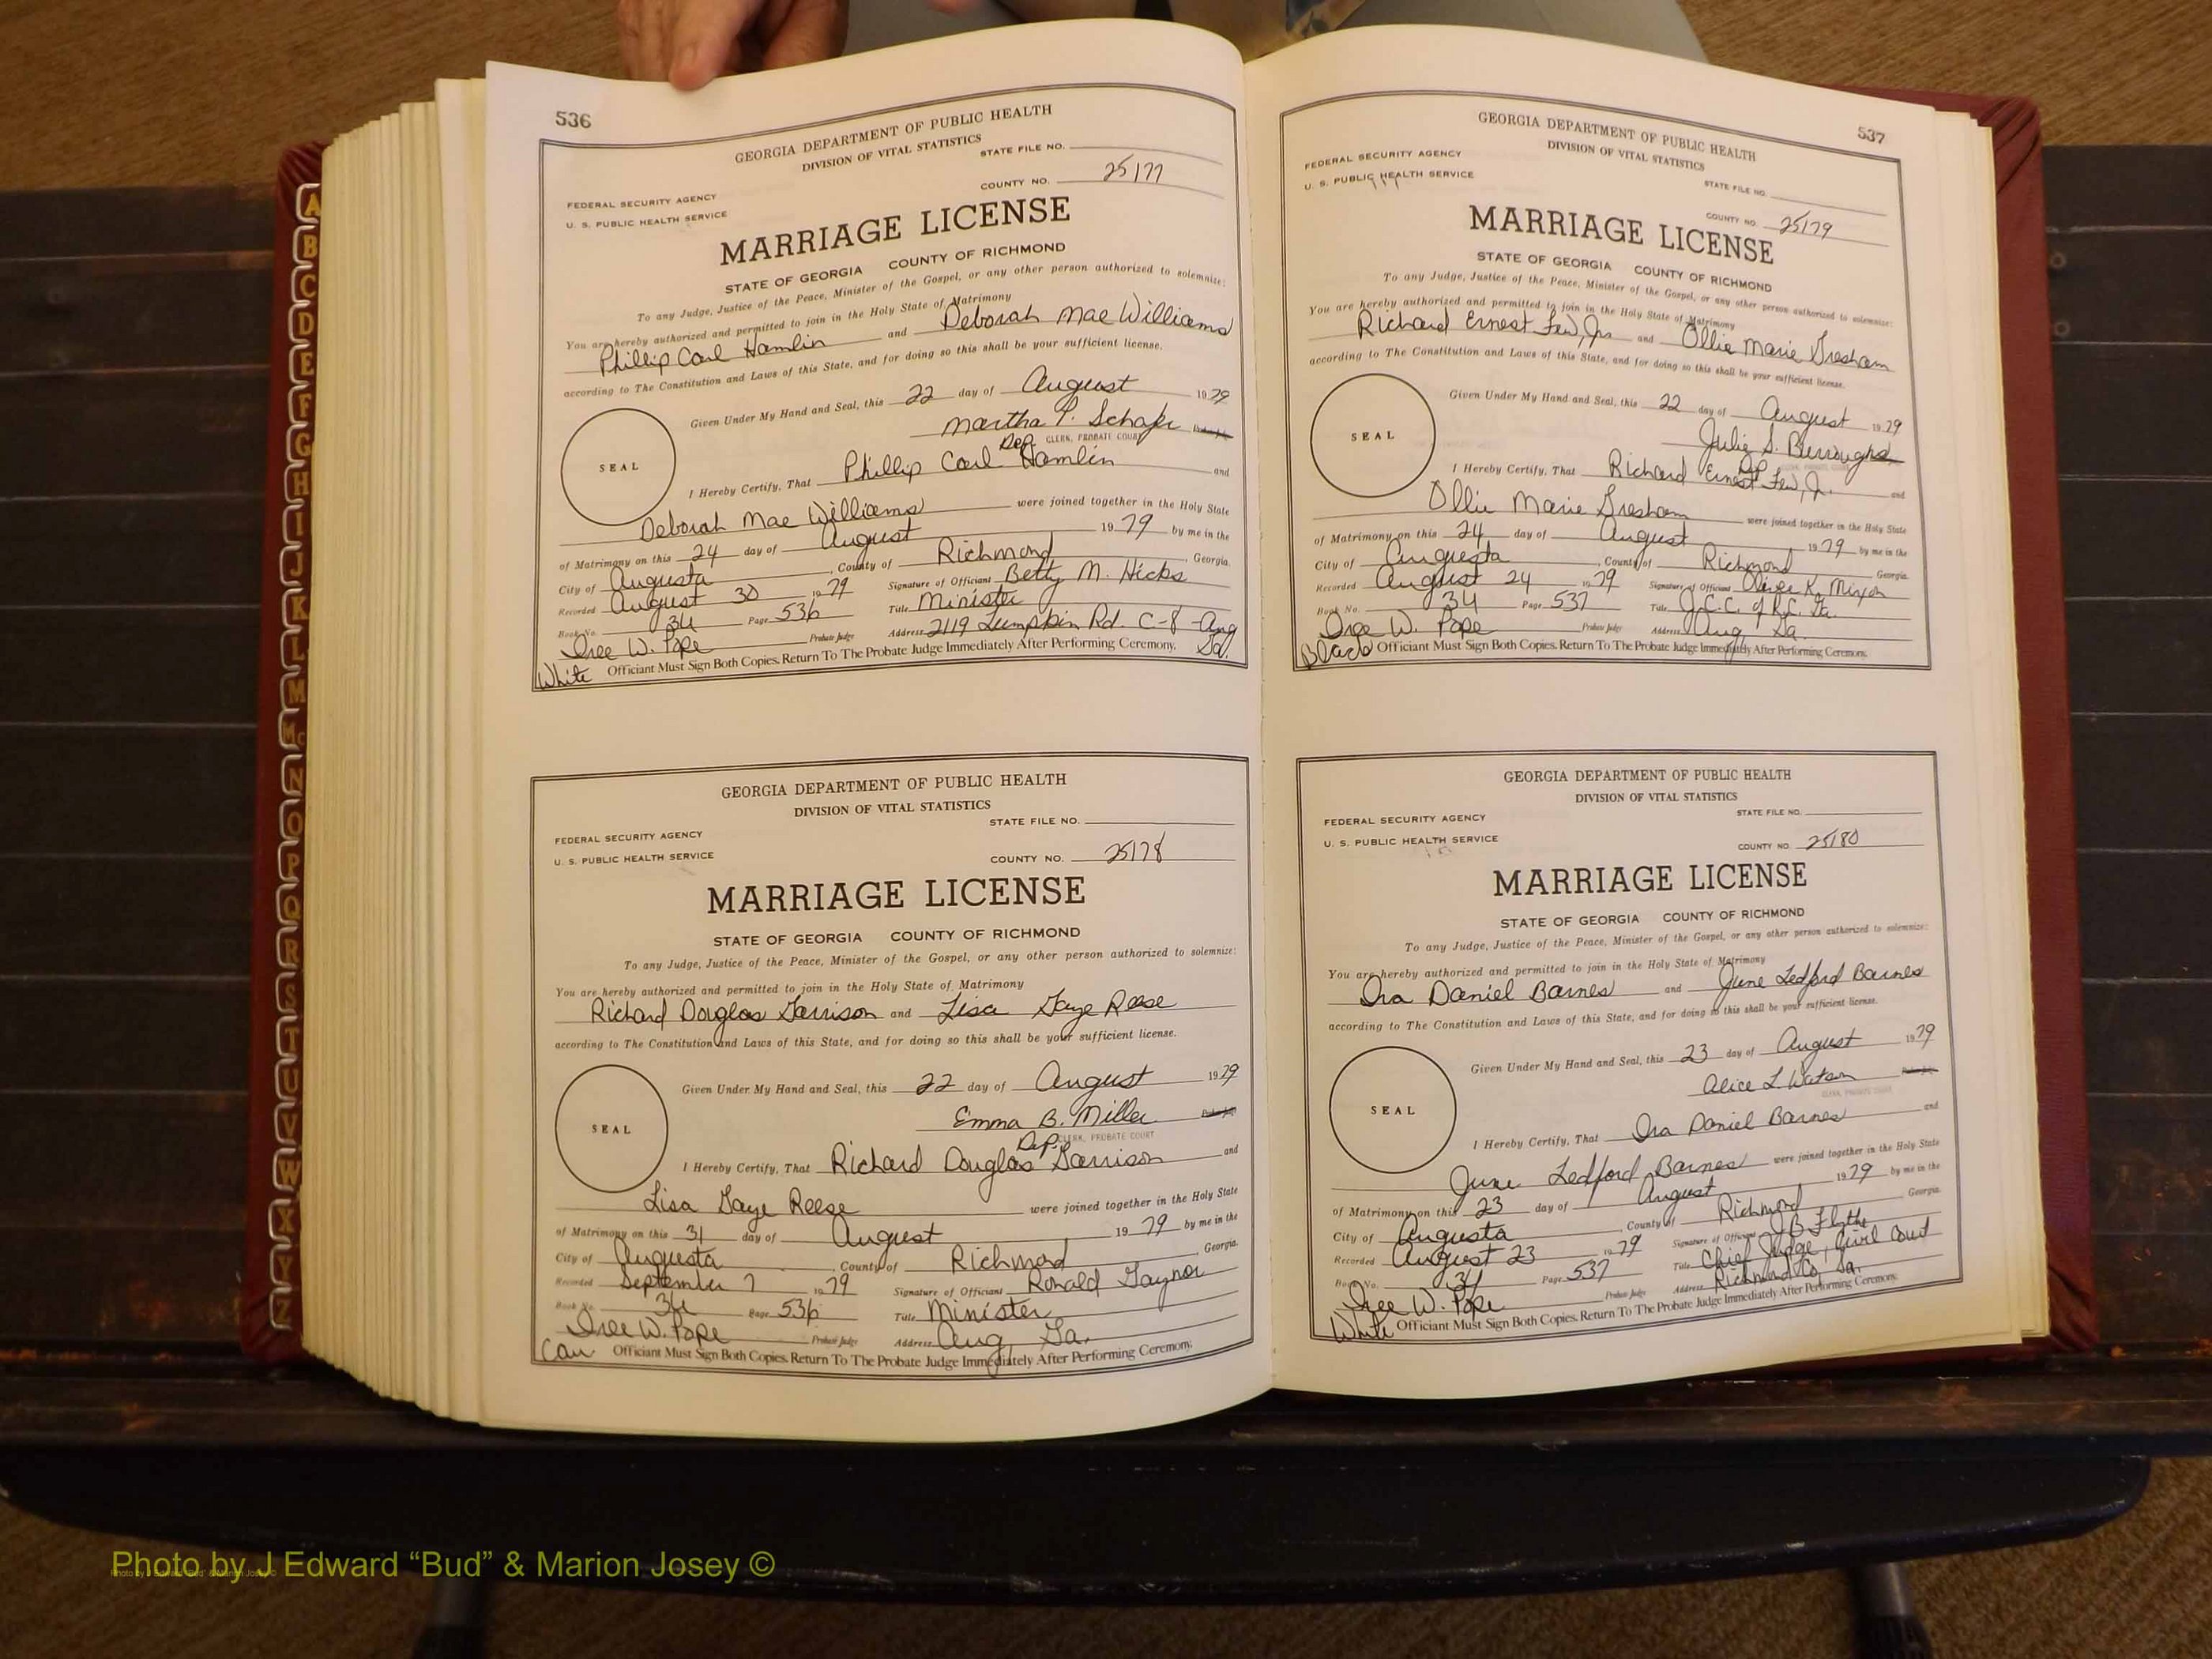 536
GEORGIA DEPARTMENT OF PUBLIC HEALTH
DIVISION OF VITAL STATISTICS
STATE FILE NO.
COUNTY NO. 25177
FEDERAL SECURITY AGENCY
U. S. PUBLIC HEALTH SERVICE
MARRIAGE LICENSE
STATE OF GEORGIA COUNTY OF RICHMOND
To any Judge, Justice of the Peace, Minister of the Gospel, or any other person authorized to solemnize:
You are hereby authorized and permitted to join in the Holy State of Matrimony
Phillip Carl Hamlin and Deborah Mae Williams
according to The Constitution and Laws of this State, and for doing so this shall be your sufficient license.
Given Under My Hand and Seal, this 22 day of August 1979
Martha P. Schafer
Dep. CLERK, PROBATE COURT
SEAL
I Hereby Certify, That Phillip Carl Hamlin and
Deborah Mae Williams were joined together in the Holy State
of Matrimony on this 24 day of August 1979 by me in the
City of Augusta, County of Richmond, Georgia.
Recorded August 30 1979 Signature of Officiant Betty M. Hicks
Book No. 34 Page 536 Title Minister
Iree W. Pope Probate Judge Address 2119 Lumpkin Rd. C-8 - Aug Ga.
White Officiant Must Sign Both Copies. Return To The Probate Judge Immediately After Performing Ceremony.
GEORGIA DEPARTMENT OF PUBLIC HEALTH
DIVISION OF VITAL STATISTICS
STATE FILE NO.
FEDERAL SECURITY AGENCY
U. S. PUBLIC HEALTH SERVICE
COUNTY NO. 25178
MARRIAGE LICENSE
STATE OF GEORGIA COUNTY OF RICHMOND
To any Judge, Justice of the Peace, Minister of the Gospel, or any other person authorized to solemnize:
You are hereby authorized and permitted to join in the Holy State of Matrimony
Richard Douglas Garrison and Lisa Gaye Reese
according to The Constitution and Laws of this State, and for doing so this shall be your sufficient license.
Given Under My Hand and Seal, this 22 day of August 1979
Emma B. Miller
Dep. CLERK, PROBATE COURT
SEAL
I Hereby Certify, That Richard Douglas Garrison and
Lisa Gaye Reese were joined together in the Holy State
of Matrimony on this 31 day of August 1979 by me in the
City of Augusta, County of Richmond, Georgia.
Recorded September 7 1979 Signature of Officiant Ronald Gaynor
Book No. 34 Page 536 Title Minister
Iree W. Pope Probate Judge Address Aug Ga.
Cau Officiant Must Sign Both Copies. Return To The Probate Judge Immediately After Performing Ceremony.
537
GEORGIA DEPARTMENT OF PUBLIC HEALTH
DIVISION OF VITAL STATISTICS
FEDERAL SECURITY AGENCY
U. S. PUBLIC HEALTH SERVICE
STATE FILE NO.
COUNTY NO. 25179
MARRIAGE LICENSE
STATE OF GEORGIA COUNTY OF RICHMOND
To any Judge, Justice of the Peace, Minister of the Gospel, or any other person authorized to solemnize:
You are hereby authorized and permitted to join in the Holy State of Matrimony
Richard Ernest Few, Jr. and Ollie Marie Gresham
according to The Constitution and Laws of this State, and for doing so this shall be your sufficient license.
Given Under My Hand and Seal, this 22 day of August 1979
Julie S. Burroughs
SEAL
I Hereby Certify, That Richard Ernest Few, Jr. and
Ollie Marie Gresham were joined together in the Holy State
of Matrimony on this 24 day of August 1979 by me in the
City of Augusta, County of Richmond, Georgia.
Recorded August 24 1979 Signature of Officiant Oliver K. Mixon
Book No. 34 Page 537 Title J.C.C. of R.C. Ga.
Iree W. Pope Probate Judge Address Aug, Ga.
Black Officiant Must Sign Both Copies. Return To The Probate Judge Immediately After Performing Ceremony.
GEORGIA DEPARTMENT OF PUBLIC HEALTH
DIVISION OF VITAL STATISTICS
STATE FILE NO.
FEDERAL SECURITY AGENCY
U. S. PUBLIC HEALTH SERVICE
COUNTY NO. 25180
MARRIAGE LICENSE
STATE OF GEORGIA COUNTY OF RICHMOND
To any Judge, Justice of the Peace, Minister of the Gospel, or any other person authorized to solemnize:
You are hereby authorized and permitted to join in the Holy State of Matrimony
Ira Daniel Barnes and June Ledford Barnes
according to The Constitution and Laws of this State, and for doing so this shall be your sufficient license.
Given Under My Hand and Seal, this 23 day of August 1979
Alice L Watson
CLERK, PROBATE COURT
SEAL
I Hereby Certify, That Ira Daniel Barnes and
June Ledford Barnes were joined together in the Holy State
of Matrimony on this 23 day of August 1979 by me in the
City of Augusta, County of Richmond, Georgia.
Recorded August 23 1979 Signature of Officiant J B Flythe
Book No. 34 Page 537 Title Chief Judge, Civil Court
Iree W. Pope Probate Judge Address Richmond Co, Ga.
White Officiant Must Sign Both Copies. Return To The Probate Judge Immediately After Performing Ceremony.
A
B
C
D
E
F
G
H
I
J
K
L
M
Mc
N
O
P
Q
R
S
T
U
V
W
X
Y
Z
Photo by J Edward “Bud” & Marion Josey ©
Photo by J Edward “Bud” & Marion Josey ©